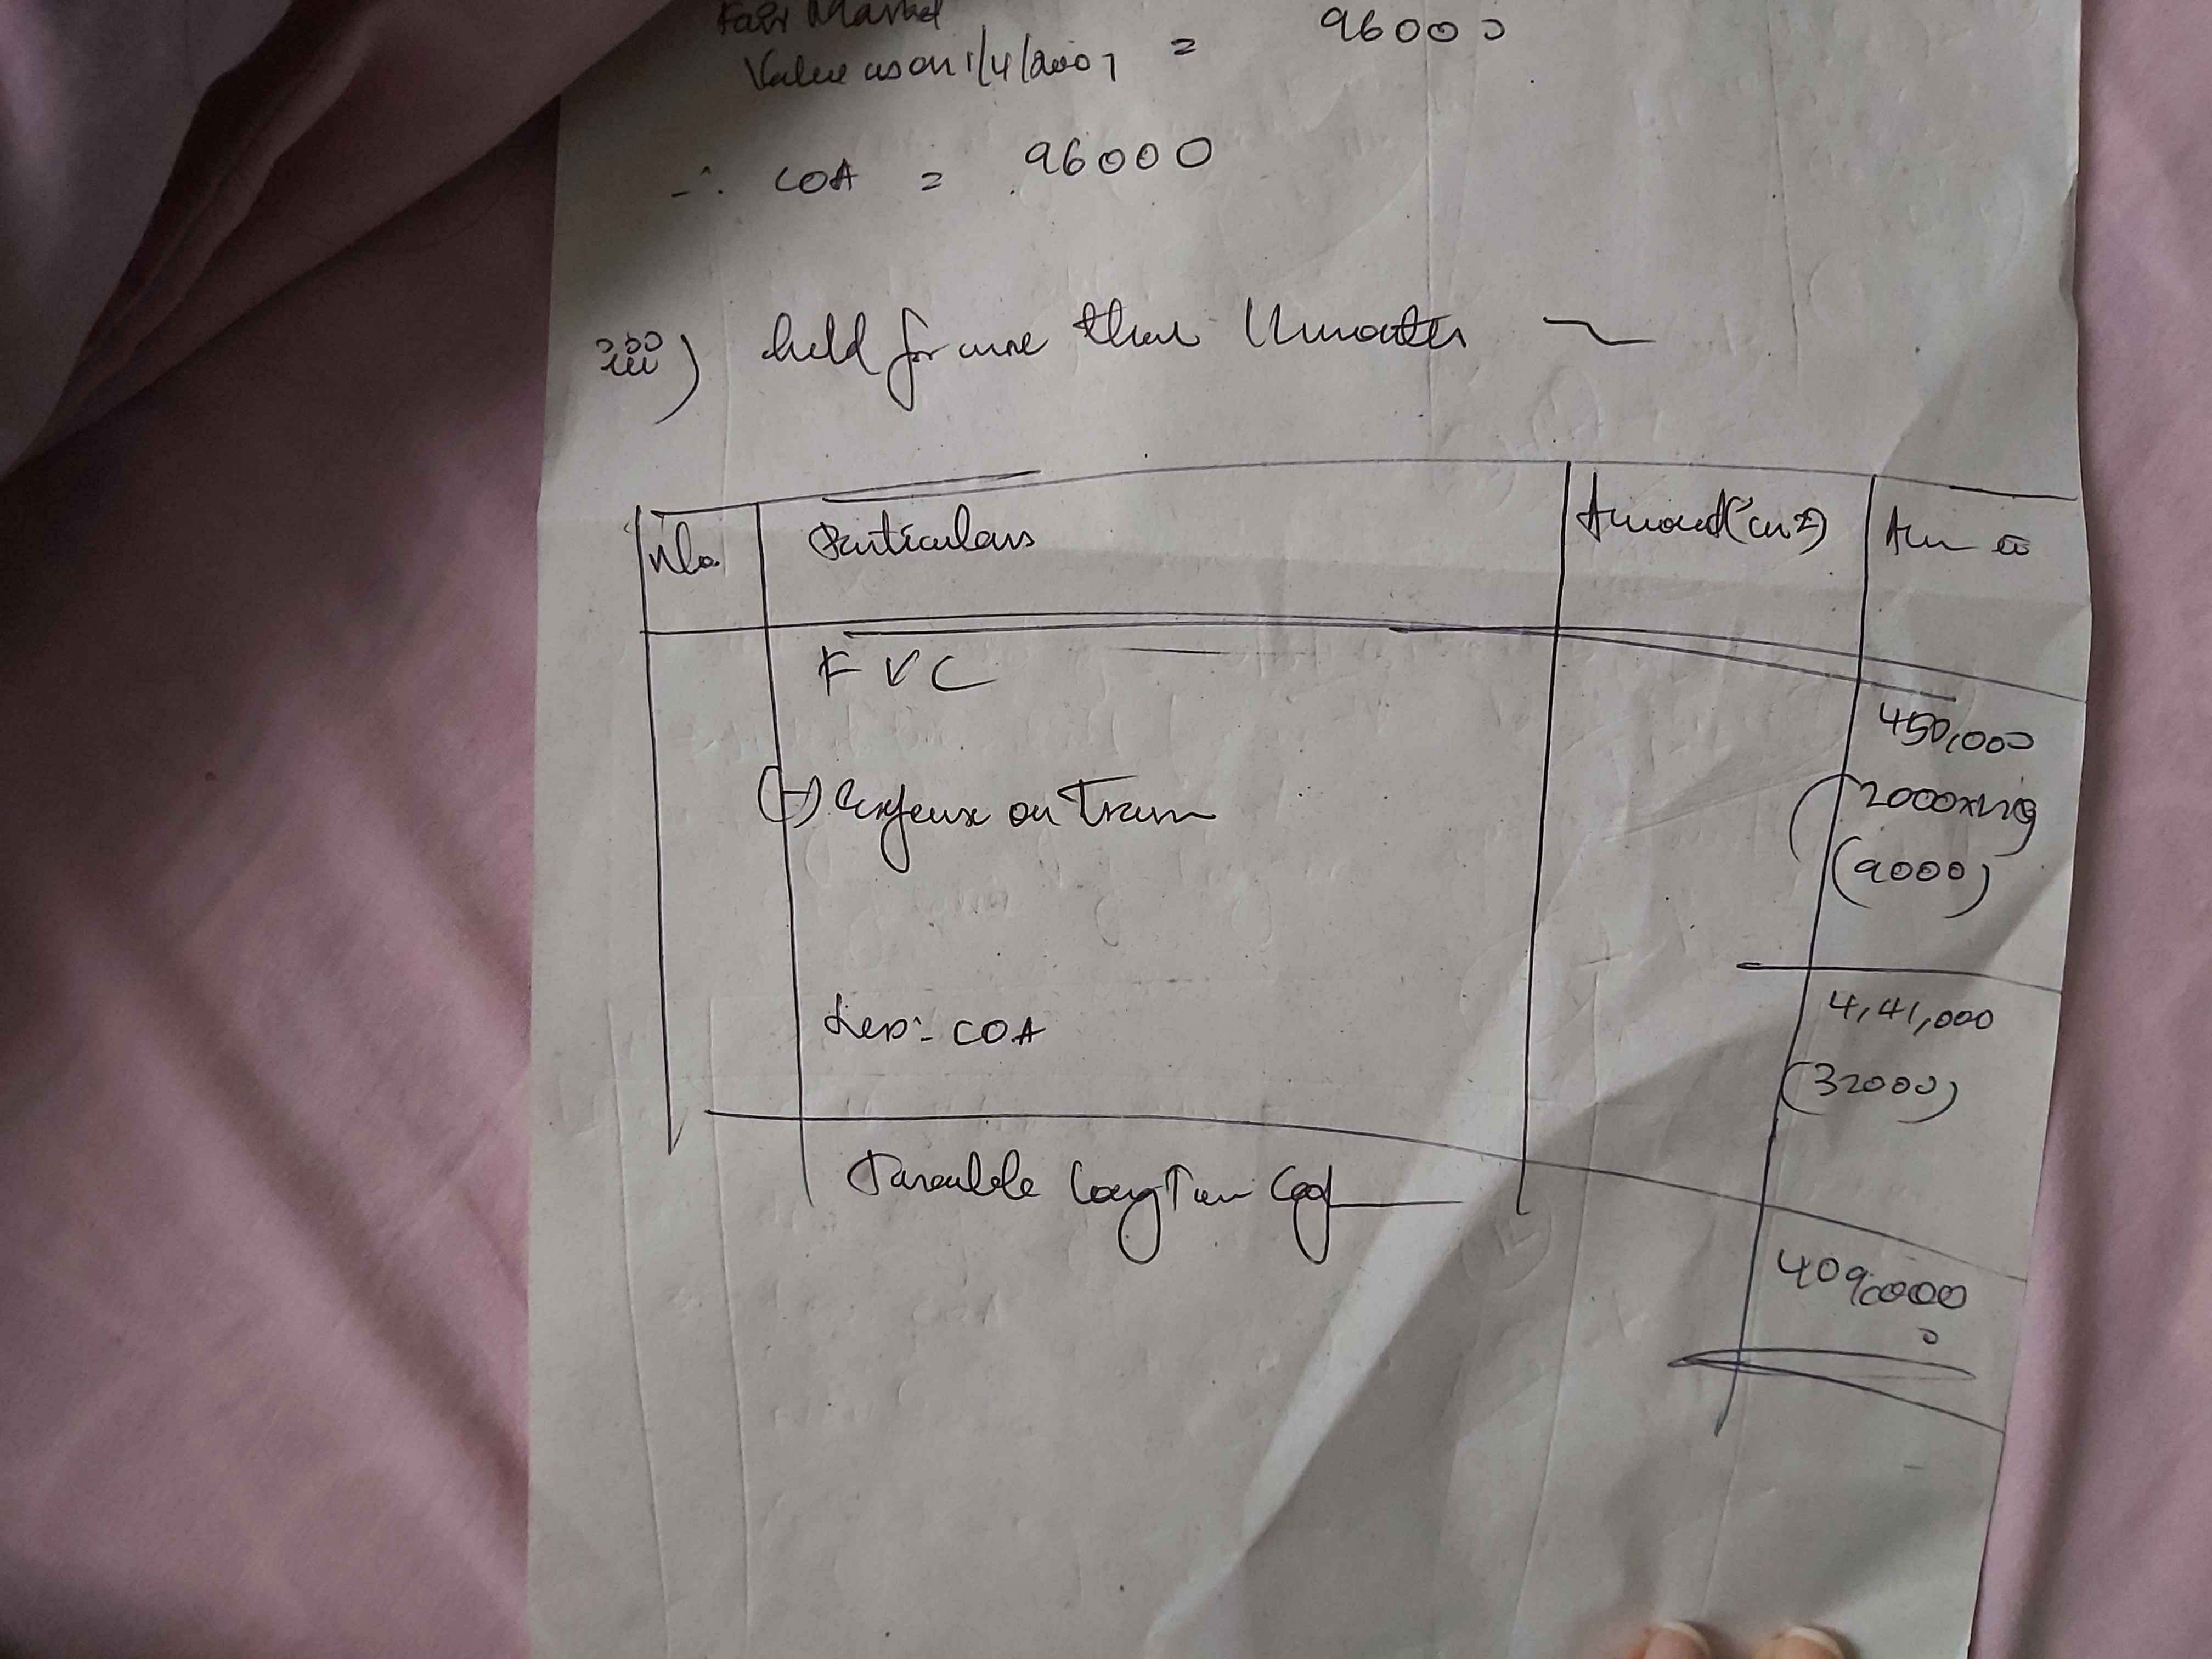 Fair Market
Value as on 1/4/2001 = 96000
∴ COA = 96000
iii) held for more than 12 months
No. Particulars Amount (in ₹) Am
FVC 450,000
(-) Expense on Tran 2000x
(9000)
4,41,000
Less:- COA (32000)
Taxable Long Term Cap